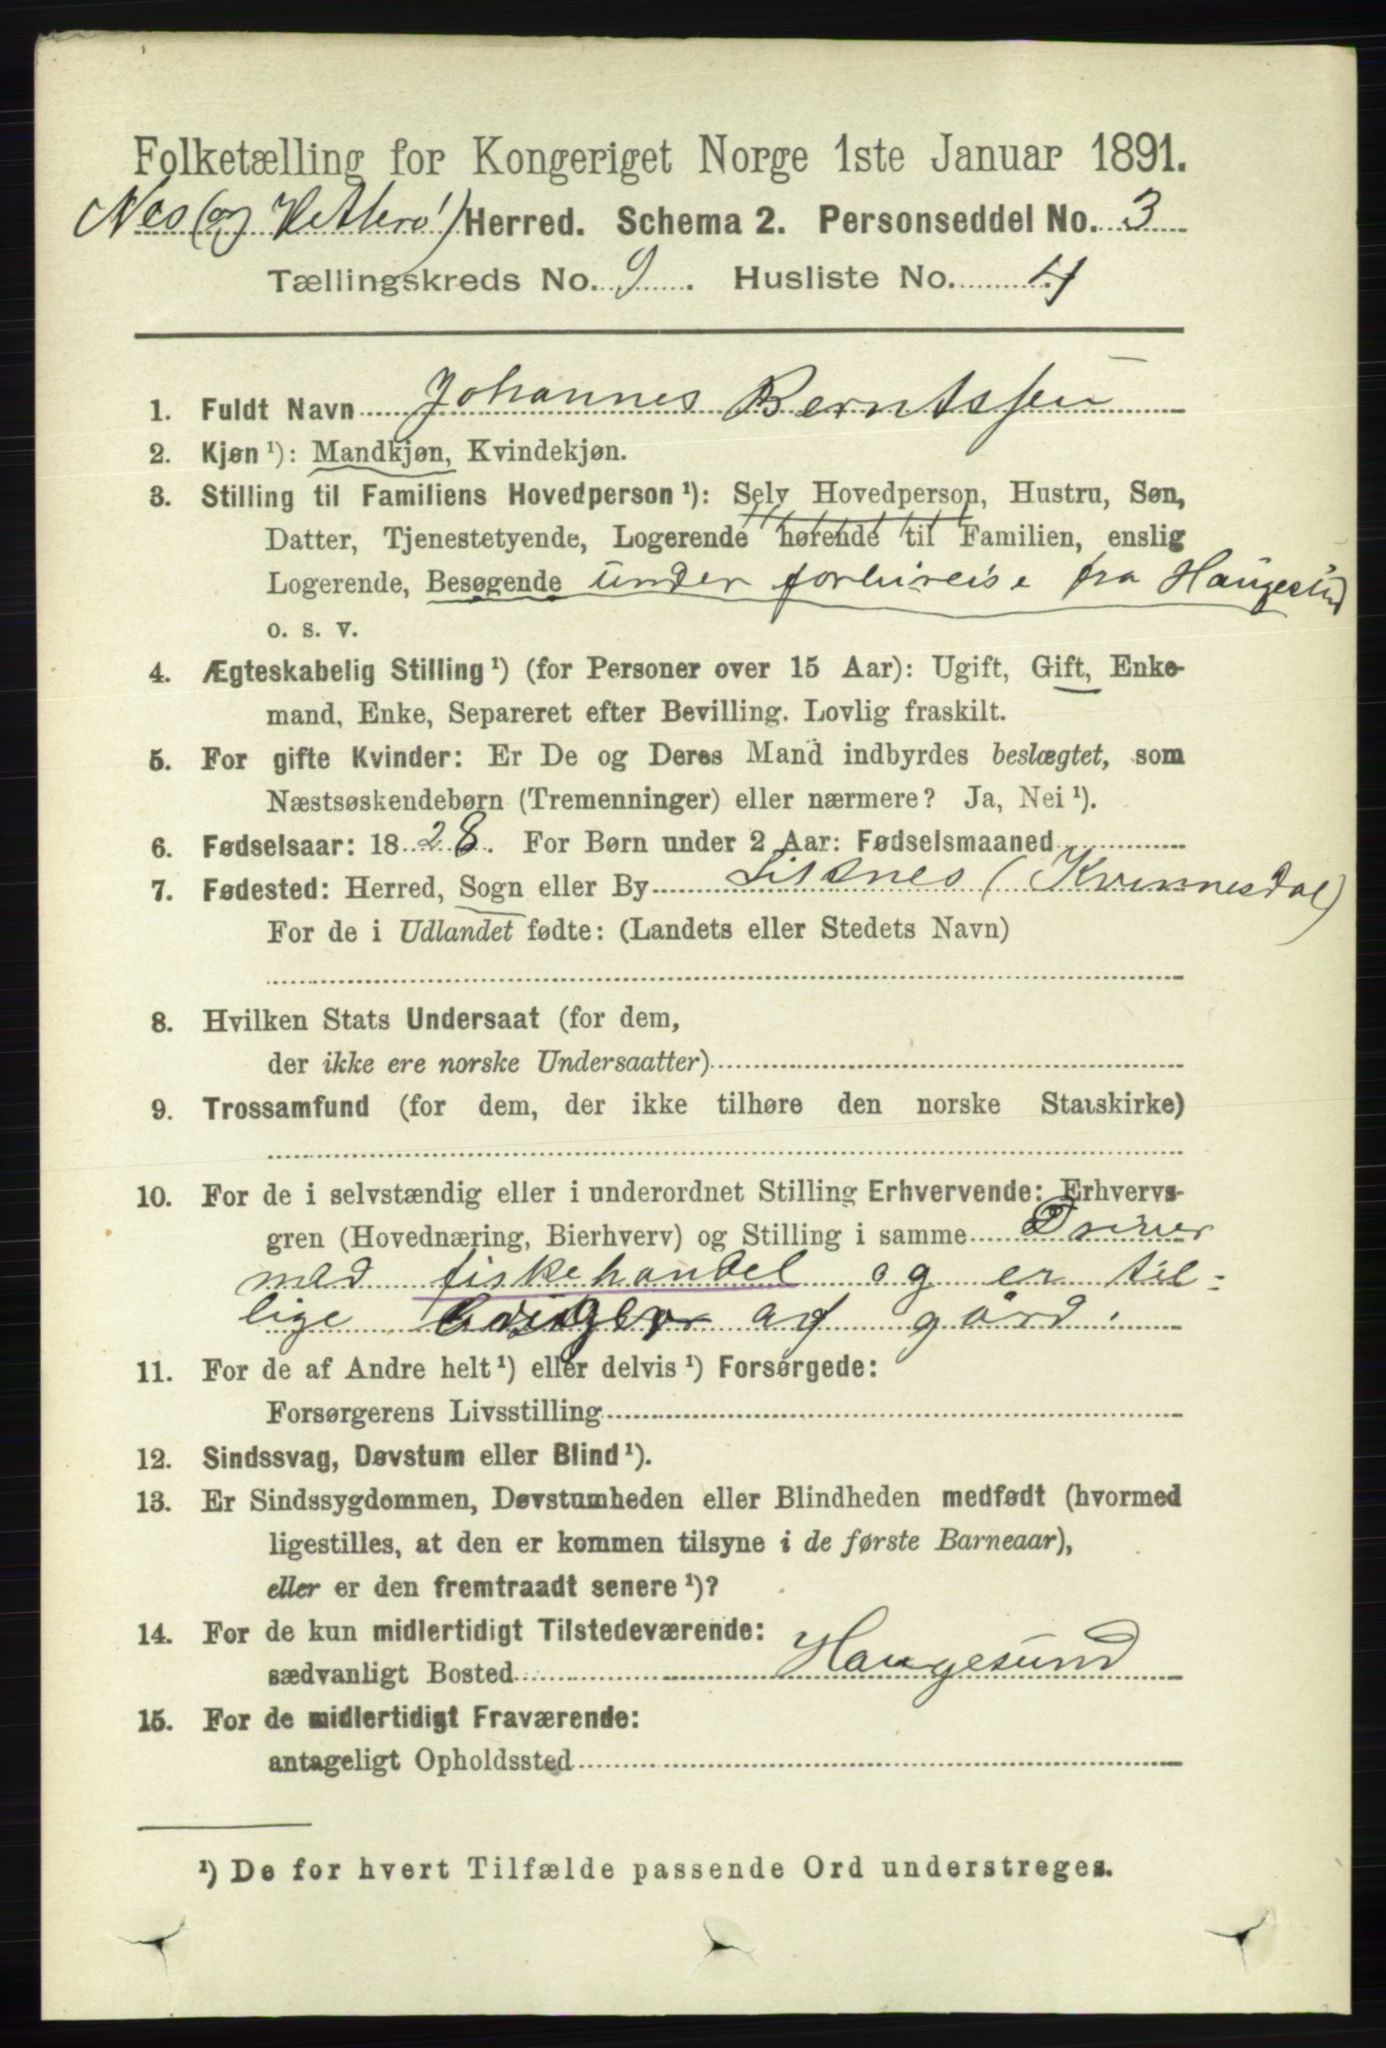 Folketælling for Kongeriget Norge 1ste Januar 1891.
Nes (og Hitterø) Herred. Schema 2. Personseddel No. 3
Tællingskreds No. 9. Husliste No. 4
1. Fuldt Navn Johannes Berntssen
2. Kjøn ¹): Mandkjøn, Kvindekjøn.
3. Stilling til Familiens Hovedperson ¹): Selv Hovedperson, Hustru, Søn,
Datter, Tjenestetyende, Logerende hørende til Familien, enslig
Logerende, Besøgende under forbireise fra Haugesund
o. s. v.
4. Ægteskabelig Stilling ¹) (for Personer over 15 Aar): Ugift, Gift, Enke-
mand, Enke, Separeret efter Bevilling. Lovlig fraskilt.
5. For gifte Kvinder: Er De og Deres Mand indbyrdes beslægtet, som
Næstsøskendebørn (Tremenninger) eller nærmere? Ja, Nei ¹).
6. Fødselsaar: 1828. For Børn under 2 Aar: Fødselsmaaned
7. Fødested: Herred, Sogn eller By (Kvinnesdal)
For de i Udlandet fødte: (Landets eller Stedets Navn)
8. Hvilken Stats Undersaat (for dem,
der ikke ere norske Undersaatter)
9. Trossamfund (for dem, der ikke tilhøre den norske Statskirke)
10. For de i selvstændig eller i underordnet Stilling Erhvervende: Erhvervs-
gren (Hovednæring, Bierhverv) og Stilling i samme Driver
med fiskehandel og er til-
lige bruger af gård.
11. For de af Andre helt ¹) eller delvis ¹) Forsørgede:
Forsørgerens Livsstilling
12. Sindssvag, Døvstum eller Blind ¹).
13. Er Sindssygdommen, Døvstumheden eller Blindheden medfødt (hvormed
ligestilles, at den er kommen tilsyne i de første Barneaar),
eller er den fremtraadt senere ¹)?
14. For de kun midlertidigt Tilstedeværende:
sædvanligt Bosted Haugesund
15. For de midlertidigt Fraværende:
antageligt Opholdssted
¹) De for hvert Tilfælde passende Ord understreges.